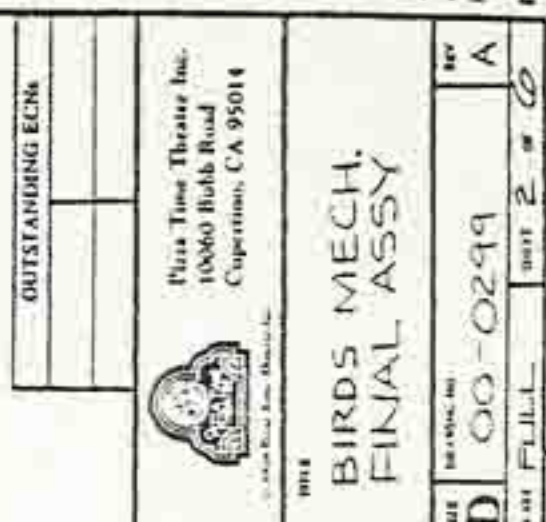 OUTSTANDING ECNs
Pizza Time Theatre Inc.
10060 Bubb Road
Cupertino, CA 95014
TITLE
BIRDS MECH.
FINAL ASSY
D
DRAWING NO.
00-0299
REV
A
FULL
SHT 2 of 6